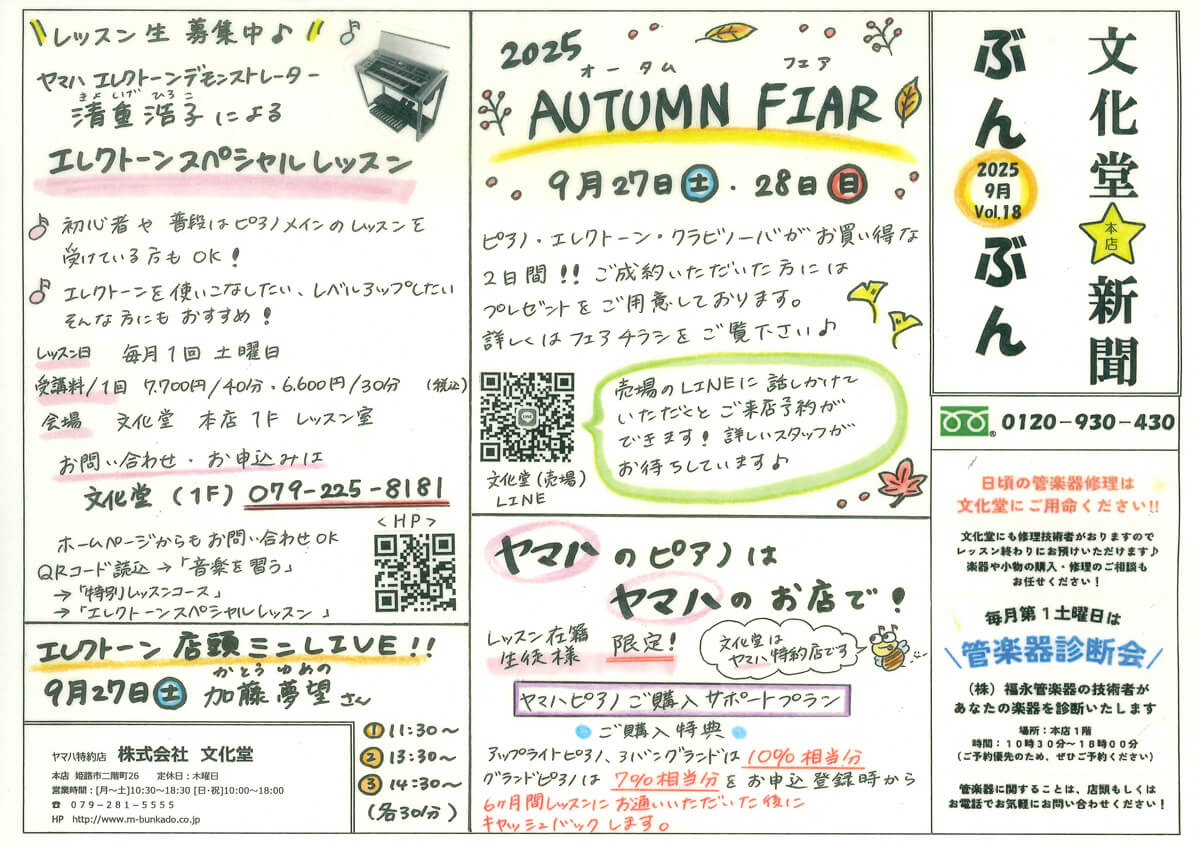 文化堂本店新聞
ぶんぶん
2025
9月
Vol.18
0120-930-430
日頃の管楽器修理は
文化堂にご用命ください!!
文化堂にも修理技術者がおりますので
レッスン終わりにお預けいただけます♪
楽器や小物の購入・修理のご相談も
お任せください！
毎月第1土曜日は
管楽器診断会
（株）福永管楽器の技術者が
あなたの楽器を診断いたします
場所：本店1階
時間：10時30分～18時00分
（ご予約優先のため、ぜひご予約ください）
管楽器に関することは、店頭もしくは
お電話でお気軽にお問い合わせください！
2025
オータム フェア
AUTUMN FIAR
9月27日土・28日日
ピアノ・エレクトーン・クラビノーバがお買い得な
2日間!! ご成約いただいた方には
プレゼントをご用意しております。
詳しくはフェアチラシをご覧下さい♪
LINE
文化堂(売場)
LINE
売場のLINEに話しかけて
いただくとご来店予約が
できます！詳しいスタッフが
お待ちしています♪
ヤマハのピアノは
ヤマハのお店で！
レッスン在籍
生徒様
限定！
文化堂は
ヤマハ特約店です
ヤマハピアノご購入サポートプラン
ご購入特典
アップライトピアノ、コバングランドは10%相当分
グランドピアノは7%相当分をお申込登録時から
6ヶ月間レッスンにお通いいただいた後に
キャッシュバックします。
レッスン生募集中♪
ヤマハエレクトーンデモンストレーター
きよしげ ひろこ
清重浩子による
エレクトーンスペシャルレッスン
初心者や普段はピアノメインのレッスンを
受けている方もOK！
エレクトーンを使いこなしたい、レベルアップしたい
そんな方にもおすすめ！
レッスン日 毎月1回土曜日
受講料/1回 7,700円/40分・6,600円/30分 (税込)
会場 文化堂 本店1F レッスン室
お問い合わせ・お申込みは
文化堂(1F) 079-225-8181
<HP>
ホームページからもお問い合わせOK
QRコード読込→「音楽を習う」
→「特別レッスンコース」
→「エレクトーンスペシャルレッスン」
エレクトーン店頭ミニLIVE!!
かとう ゆめの
9月27日土 加藤夢望さん
①11:30～
②13:30～
③14:30～
(各30分)
ヤマハ特約店 株式会社 文化堂
本店 姫路市二階町26 定休日：木曜日
営業時間：[月～土]10:30～18:30 [日・祝]10:00～18:00
☎ 079-281-5555
HP http://www.m-bunkado.co.jp